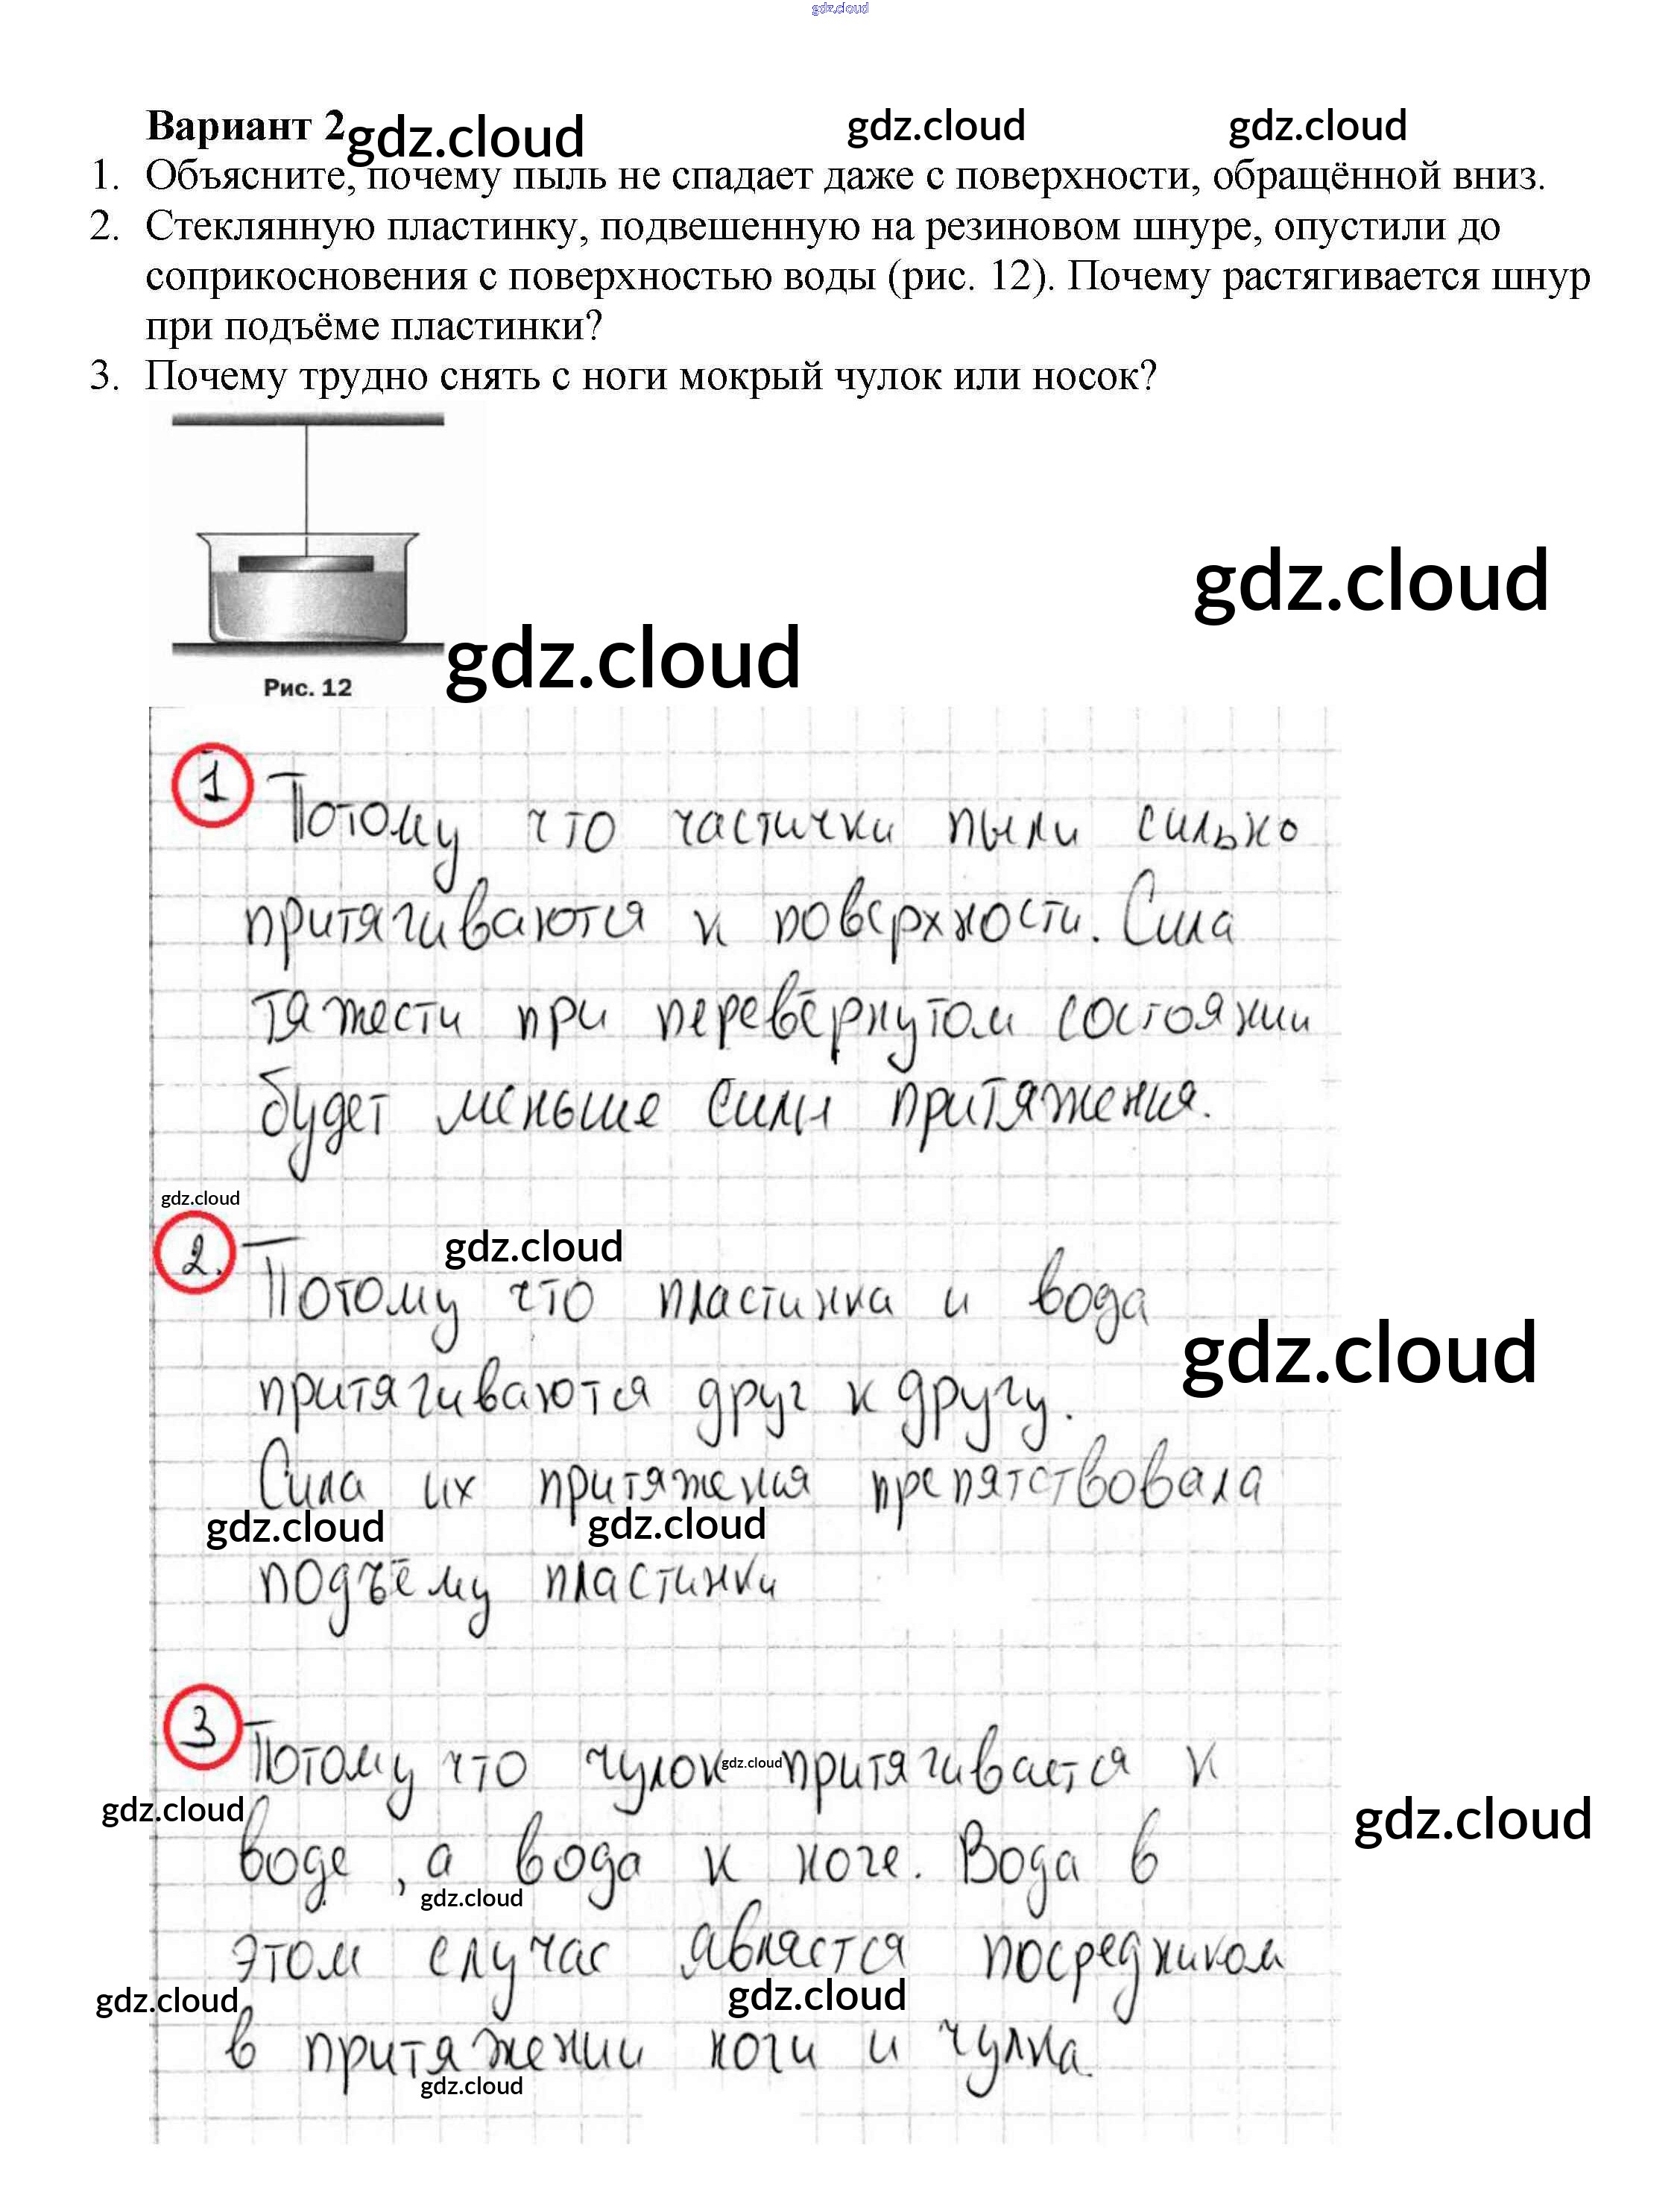 gdz.cloud
Вариант 2 gdz.cloud gdz.cloud gdz.cloud
1. Объясните, почему пыль не спадает даже с поверхности, обращённой вниз.
2. Стеклянную пластинку, подвешенную на резиновом шнуре, опустили до
соприкосновения с поверхностью воды (рис. 12). Почему растягивается шнур
при подъёме пластинки?
3. Почему трудно снять с ноги мокрый чулок или носок?
gdz.cloud
gdz.cloud
Рис. 12
1 Потому что частички пыли сильно
притягиваются к поверхности. Сила
тяжести при перевёрнутом состоянии
будет меньше силы притяжения.
gdz.cloud
gdz.cloud
2. Потому что пластинка и вода
gdz.cloud
притягиваются друг к другу.
Сила их притяжения препятствовала
gdz.cloud gdz.cloud
подъёму пластинки
3 Потому что чулок gdz.cloud притягивается к
gdz.cloud gdz.cloud
воде, а вода к ноге. Вода в
gdz.cloud
этом случае является посредником
gdz.cloud gdz.cloud
в притяжении ноги и чулка.
gdz.cloud